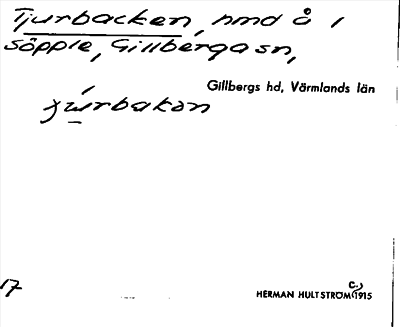 Tjurbacken, hmd å 1
Söpple, Gillberga sn,
Gillbergs hd, Värmlands län
17
HERMAN HULTSTRÖM C:) 1915